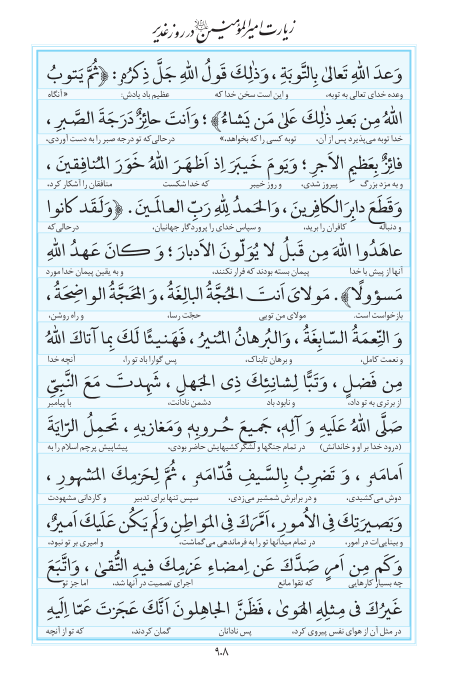 زیارت امیرالمؤمنین در روز غدیر
وَعدَ اللهِ تَعالىٰ بِالتَّوبَةِ ، وَذٰلِكَ قَولُ اللهِ جَلَّ ذِكرُهُ: ﴿ثُمَّ يَتوبُ
وعده خدای تعالی به توبه، و این است سخن خدا که عظیم باد یادش: «آنگاه
اللهُ مِن بَعدِ ذٰلِكَ عَلىٰ مَن يَشاءُ﴾ ؛ وَاَنتَ حائِزٌ دَرَجَةَ الصَّبرِ ،
خدا توبه می‌پذیرد پس از آن، توبه کسی را که بخواهد،» درحالی‌که تو درجه صبر را به دست آوردی،
فائِزٌ بِعَظيمِ الاَجرِ ؛ وَيَومَ خَيبَرَ اِذ اَظهَرَ اللهُ خَوَرَ المُنافِقينَ ،
و به مزد بزرگ پیروز شدی، و روز خیبر که خدا شکست منافقان را آشکار کرد،
وَقَطَعَ دابِرَ الكافِرينَ ، وَالحَمدُ لِلّهِ رَبِّ العالَمينَ. ﴿وَلَقَد كانوا
و دنباله کافران را برید، و سپاس خدای را پروردگار جهانیان، درحالی‌که
عاهَدُوا اللهَ مِن قَبلُ لا يُوَلّونَ الاَدبارَ ؛ وَ كانَ عَهدُ اللهِ
آنها از پیش با خدا پیمان بسته بودند که فرار نکنند، و به یقین پیمان خدا مورد
مَسؤولًا﴾. مَولايَ اَنتَ الحُجَّةُ البالِغَةُ ، وَ المَحَجَّةُ الواضِحَةُ ،
بازخواست است. مولای من تویی حجّت رسا، و راه روشن،
وَ النِّعمَةُ السّابِغَةُ ، وَالبُرهانُ المُنيرُ ، فَهَنيئًا لَكَ بِما آتاكَ اللهُ
و نعمت کامل، و برهان تابناک، پس گوارا باد تو را، آنچه خدا
مِن فَضلٍ ، وَتَبًّا لِشانِئِكَ ذِي الجَهلِ ، شَهِدتَ مَعَ النَّبِيِّ
از برتری به تو داد، و نابود باد دشمن نادانت، با پیامبر
صَلَّى اللهُ عَلَيهِ وَ آلِهِ، جَميعَ حُروبِهِ وَمَغازيهِ ، تَحمِلُ الرّايَةَ
(درود خدا بر او و خاندانش) در تمام جنگها و لشگرکشیهایش حاضر بودی، پیشاپیش پرچم اسلام را به
اَمامَهُ ، وَ تَضرِبُ بِالسَّيفِ قُدّامَهُ ، ثُمَّ لِحَزمِكَ المَشهورِ ،
دوش می‌کشیدی، و در برابرش شمشیر می‌زدی، سپس تنها برای تدبیر و کاردانی مشهودت
وَبَصيرَتِكَ فِي الاُمورِ، اَمَّرَكَ فِي المَواطِنِ وَلَم يَكُن عَلَيكَ اَميرٌ،
و بینایی‌ات در امور، در تمام میدانها تو را به فرماندهی می‌گماشت، و امیری بر تو نبود،
وَكَم مِن اَمرٍ صَدَّكَ عَن اِمضاءِ عَزمِكَ فيهِ التُّقىٰ ، وَاتَّبَعَ
چه بسیار کارهایی که تقوا مانع اجرای تصمیمت در آنها شد، اما جز تو
غَيرُكَ في مِثلِهِ الهَوىٰ ، فَظَنَّ الجاهِلونَ اَنَّكَ عَجَزتَ عَمّا اِلَيهِ
در مثل آن از هوای نفس پیروی کرد، پس نادانان گمان کردند، که تو از آنچه
۹۰۸